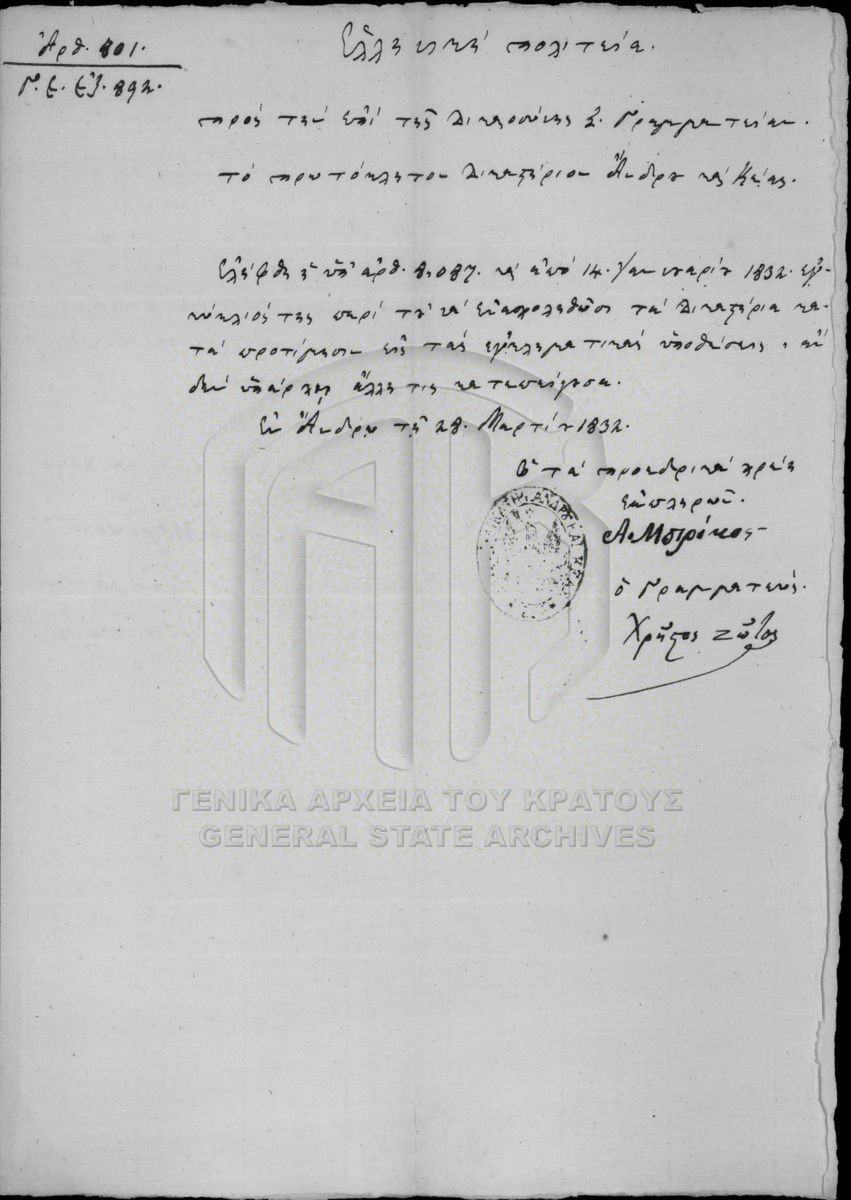 Ἀρθ. 801.
Γ. Ε. Ἐξ. 892.
Ἑλληνική πολιτεία.
πρός τήν ἐπί τῆς Δικαιοσύνης Γραμματείαν.
τό πρωτόκλητον Δικαστήριον Ἄνδρου καί Κέας.
Ἐλήφθη ἡ ὑπ' ἀρθ. 8,087. καί ἀπό 14. Ἰαννουαρίου 1832. ἐγ-
κύκλιός της περί τοῦ νά ἐνασχοληθῶσι τά Δικαστήρια κα-
τά προτίμησιν εἰς τάς ἐγκληματικάς ὑποθέσεις, ἄν
δέν ὑπάρχῃ ἄλλη τις κατεπείγουσα.
Ἐν Ἄνδρῳ τῇ 28. Μαρτίου 1832.
Ὁ τά προεδρικά χρέη
ἐκπληρῶν.
Α. Μπρόκος
ὁ Γραμματεύς.
Χρῆστος Ζῶτος
ΑΝΔΡΟΥ ΚΑΙ ΚΕΑΣ
ΓΕΝΙΚΑ ΑΡΧΕΙΑ ΤΟΥ ΚΡΑΤΟΥΣ
GENERAL STATE ARCHIVES